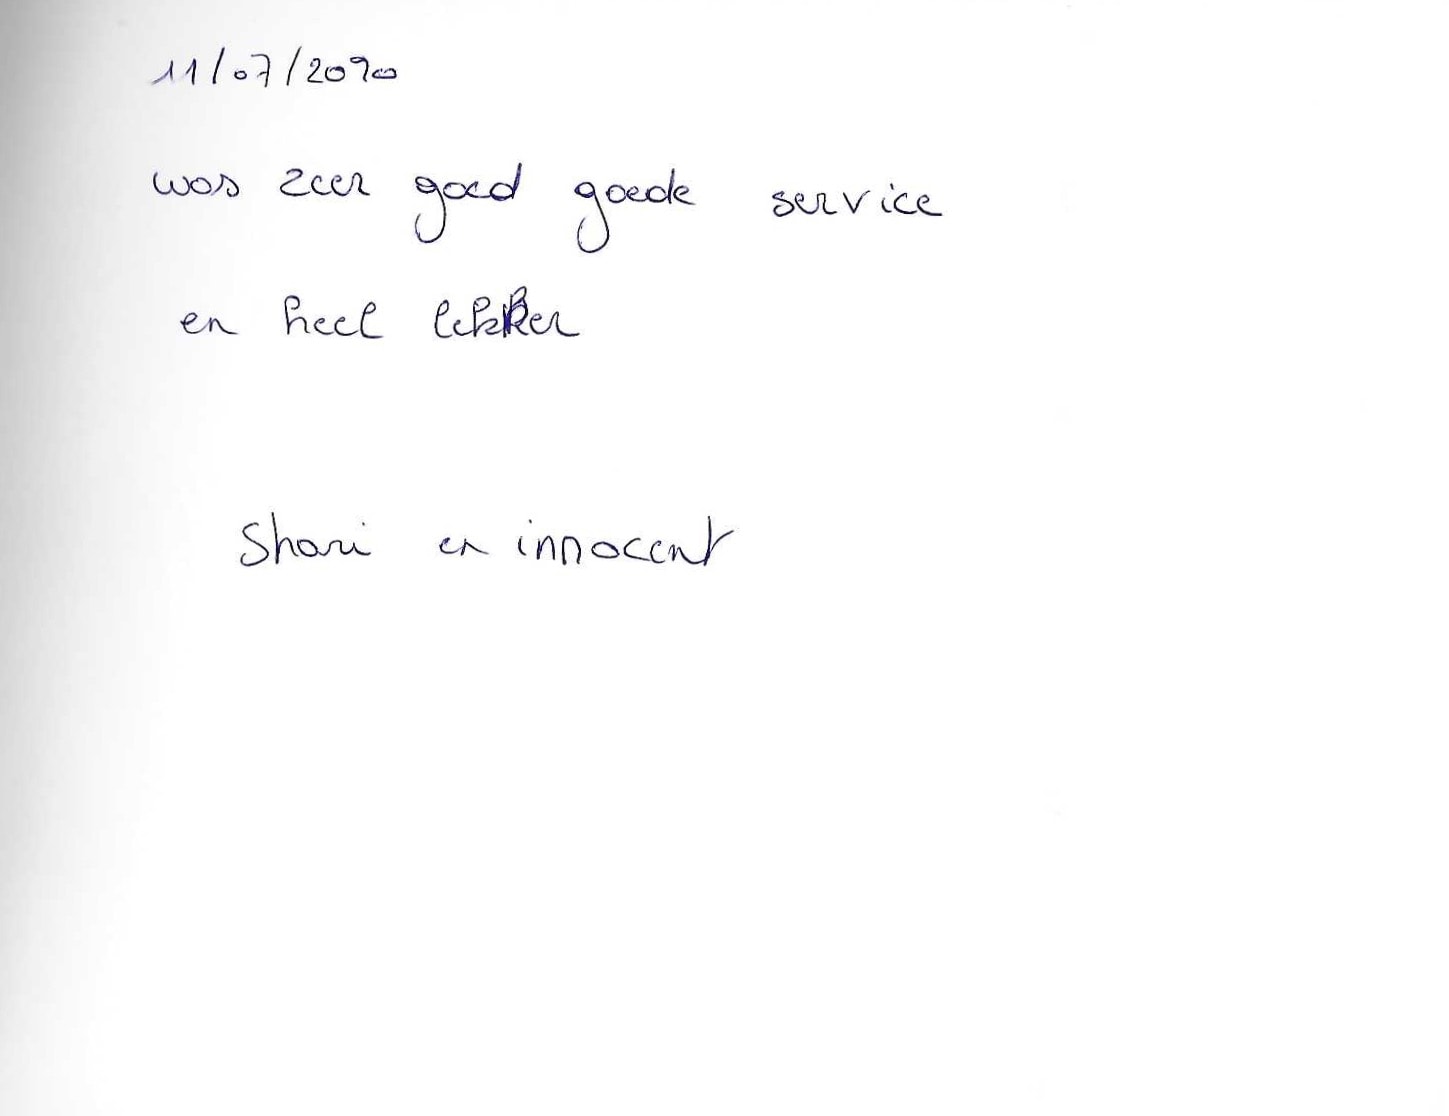 11/07/2020
was zeer goed goede service
en heel lekker
Shari en innocent